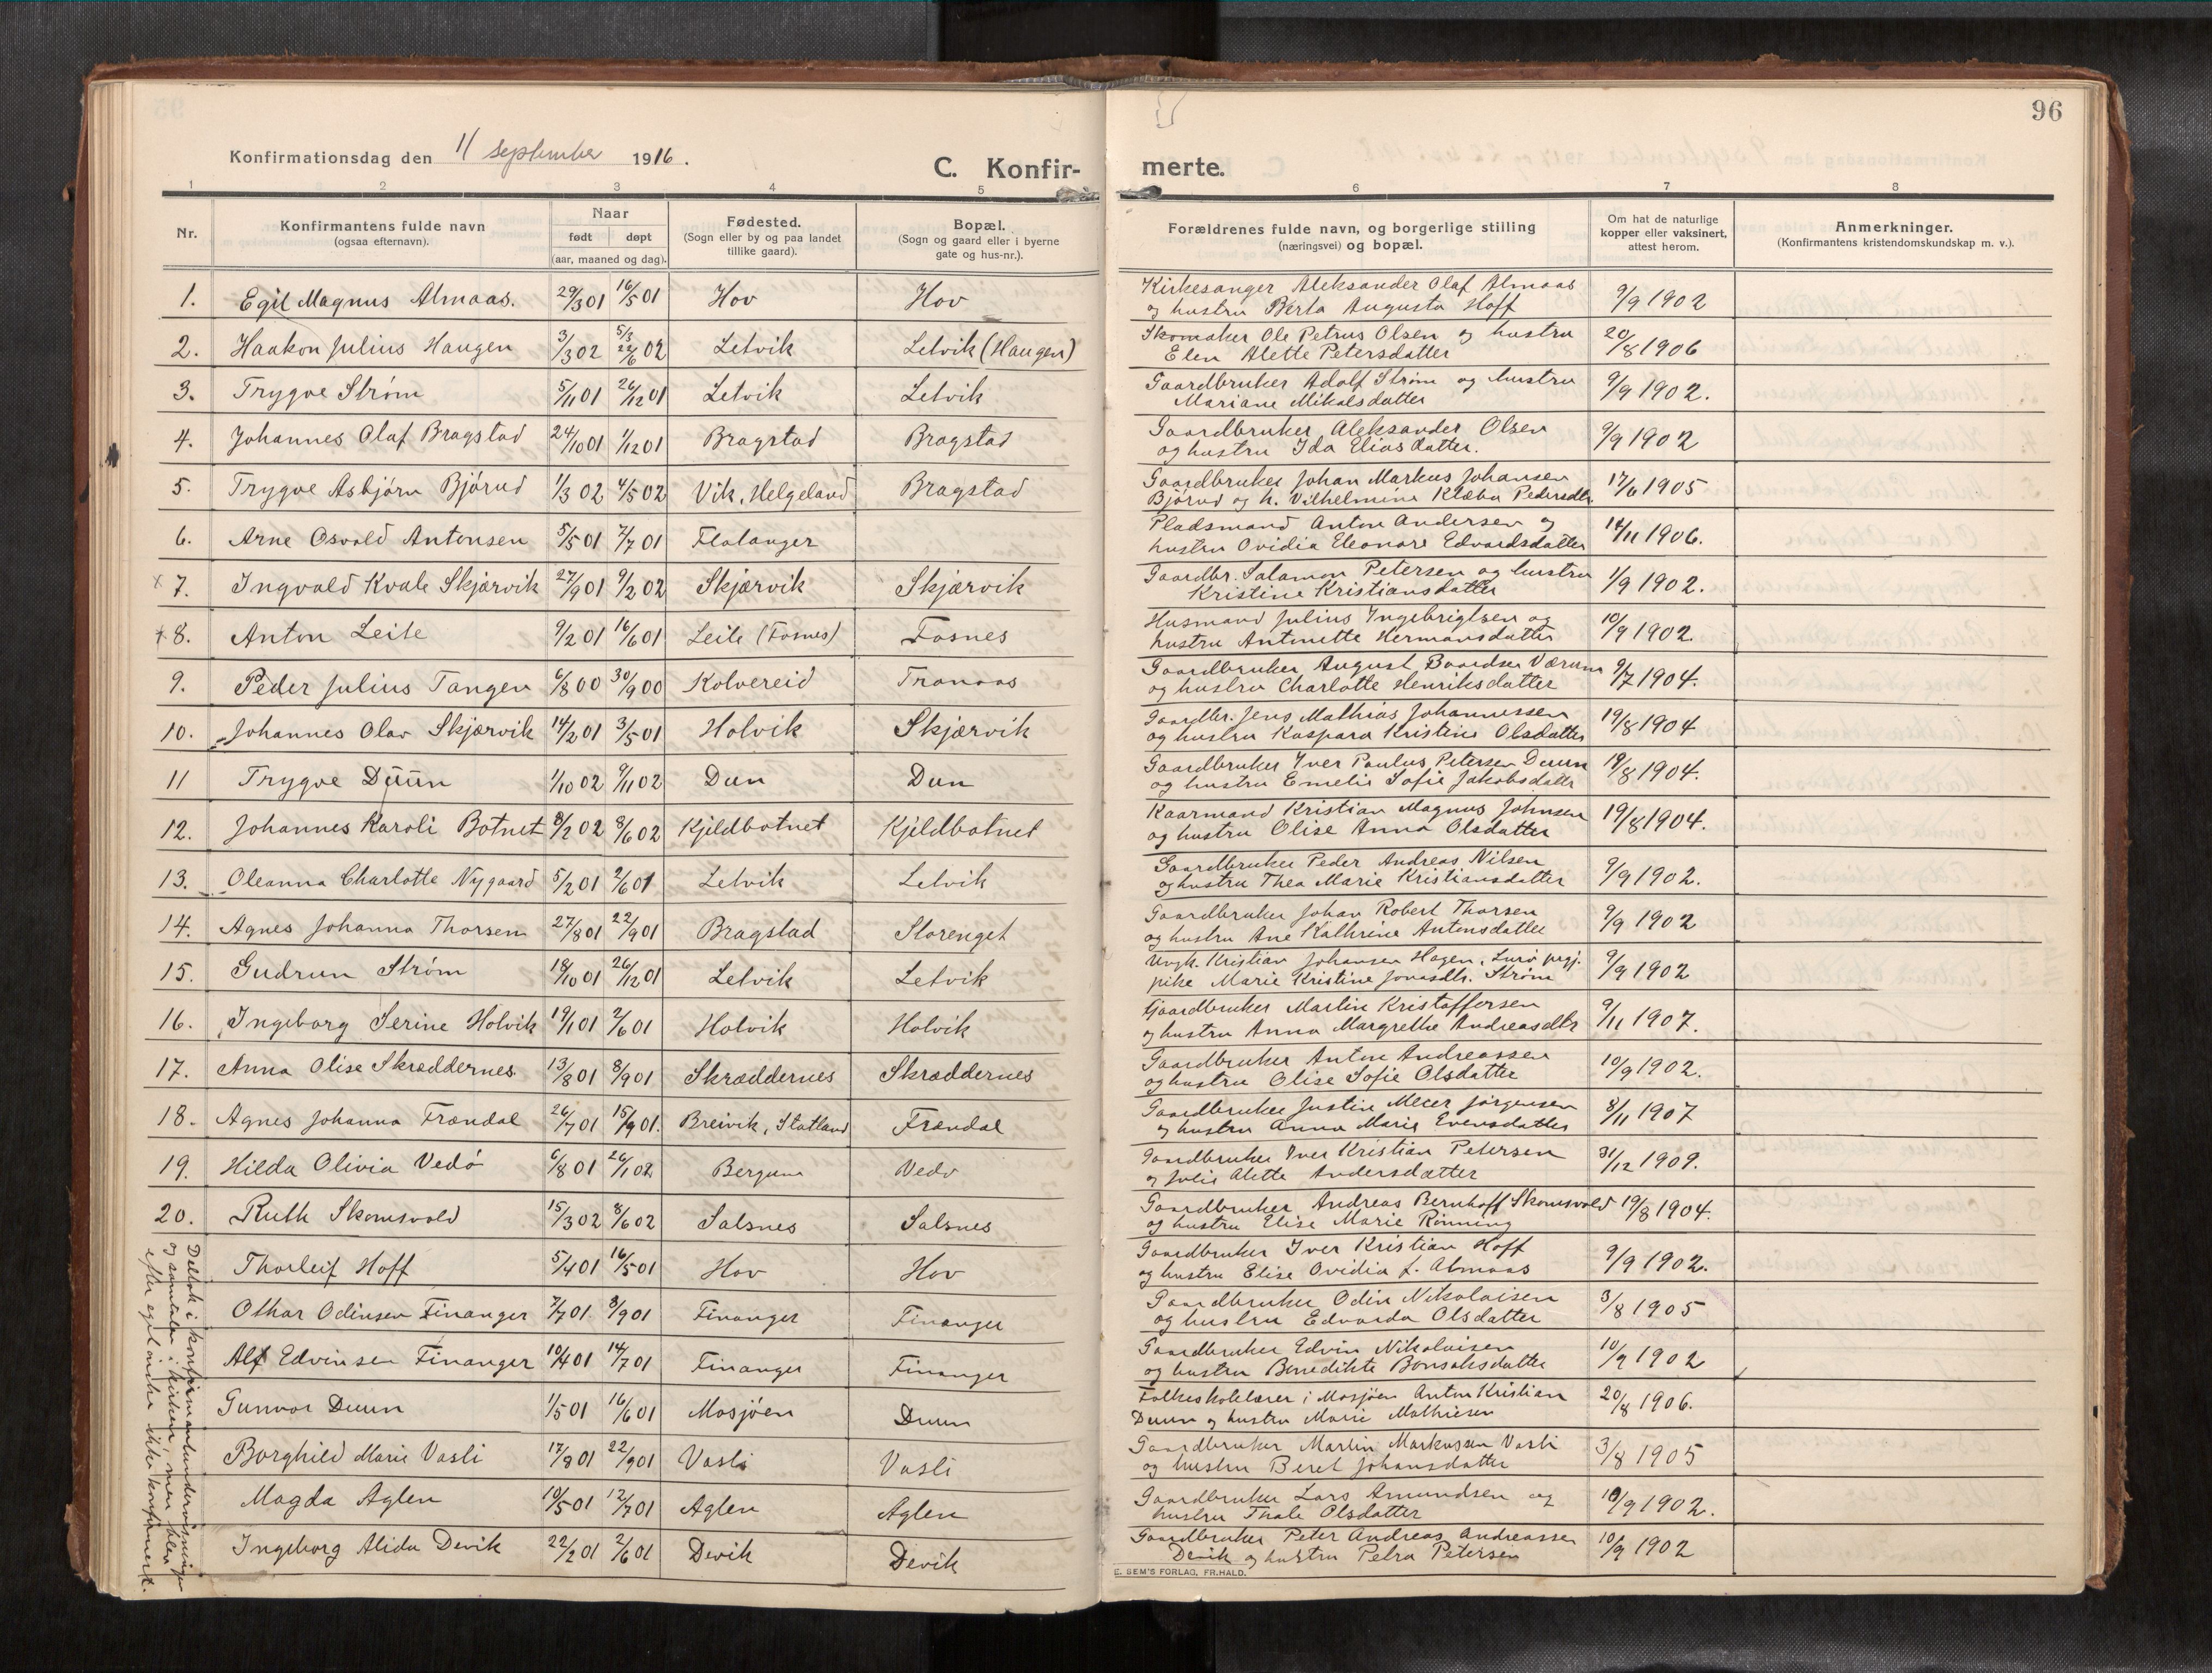 96
Konfirmationsdag den 11 september 1916.
C. Konfir- merte.
1 2 3 4 5 6 7 8
Nr. Konfirmantens fulde navn (ogsaa efternavn). Naar født døpt (aar, maaned og dag). Fødested. (Sogn eller by og paa landet tillike gaard). Bopæl. (Sogn og gaard eller i byerne gate og hus-nr.). Forældrenes fulde navn, og borgerlige stilling (næringsvei) og bopæl. Om hat de naturlige kopper eller vaksinert, attest herom. Anmerkninger. (Konfirmantens kristendomskundskap m. v.).
1. Egil Magnus Almaas. 29/3 01 16/5 01 Hov Hov Kirkesanger Aleksander Olaf Almaas
og hustru Berta Augusta Hoff 9/9 1902
2. Haakon Julius Haugen 3/3 02 5/3 22/6 02 Letvik Letvik (Haugen) Skomaker Ole Petrus Olsen og hustru
Elen Alette Petersdatter 20/8 1906
3. Trygve Strøm 5/11 01 26/12 01 Letvik Letvik Gaardbruker Adolf Strøm og hustru
Mariane Mikalsdatter 9/9 1902.
4. Johannes Olaf Bragstad 24/10 01 1/12 01 Bragstad Bragstad Gaardbruker Aleksander Olsen
og hustru Ida Eliasdatter. 9/9 1902
5. Trygve Asbjørn Bjørud 1/3 02 4/5 02 Vik, Helgeland Bragstad Gaardbruker Johan Markus Johansen
Bjørud og h. Vilhelmine Klæbu Pedersdtr 17/6 1905
6. Arne Osvald Antonsen 5/5 01 7/7 01 Flatanger Pladsmand Anton Andersen og
hustru Ovidia Eleonore Edvardsdatter 14/11 1906.
x 7. Ingvald Kvale Skjærvik 27/9 01 9/2 02 Skjærvik Skjærvik Gaardbr. Salamon Petersen og hustru
Kristine Kristiansdatter 1/9 1902.
x 8. Anton Leite 9/2 01 16/6 01 Leite (Fosnes) Fosnes Husmand Julius Ingebrigtsen og
hustru Antonette Hermansdatter 10/9 1902.
9. Peder Julius Tangen 6/8 00 30/9 00 Kolvereid Tranaas Gaardbruker August Baardsen Værum
og hustru Charlotte Henriksdatter 9/7 1904.
10. Johannes Olav Skjærvik 14/2 01 3/5 01 Holvik Skjærvik Gaardbr. Jens Mathias Johannessen
og hustru Kaspara Kristine Olsdatter 19/8 1904
11 Trygve Duun 1/10 02 9/11 02 Dun Dun Gaardbruker Iver Paulus Petersen Duun
og hustru Emelie Sofie Jakobsdatter 19/8 1904.
12. Johannes Karoli Botnet 8/2 02 8/6 02 Kjeldbotnet Kjeldbotnet Kaarmand Kristian Magnus Johnsen
og hustru Olise Anna Olsdatter 19/8 1904.
13. Oleanna Charlotte Nygaard 5/2 01 2/6 01 Letvik Letvik Gaardbruker Peder Andreas Nilsen
og hustru Thea Marie Kristiansdatter 9/9 1902.
14. Agnes Johanna Thorsen 27/8 01 22/9 01 Bragstad Storenget Gaardbruker Johan Robert Thorsen
og hustru Ane Kathrine Antonsdatter 9/9 1902
15. Gudrun Strøm 18/10 01 26/12 01 Letvik Letvik Ungk. Kristian Johansen Hagen, Lurø prgj.
pike Marie Kristine Jonasdtr. Strøm 9/9 1902
16. Ingeborg Serine Holvik 19/1 01 2/6 01 Holvik Holvik Gjaardbruker Martin Kristoffersen
og hustru Anna Margrethe Andreasdtr 9/11 1907.
17. Anna Olise Skræddernes 13/8 01 8/9 01 Skræddernes Skræddernes Gaardbruker Anton Andreassen
og hustru Olise Sofie Olsdatter 10/9 1902.
18. Agnes Johanna Frændal 26/7 01 15/9 01. Breivik, Statland Frændal Gaardbruker Justin Meier Jørgensen
og hustru Anna Marie Evensdatter 8/11 1907
19. Hilda Olivia Vedø 6/8 01 26/1 02 Bergum Vedø Gaardbruker Iver Kristian Petersen
og Julie Alette Andersdatter 31/12 1909.
20. Ruth Skomsvold 15/3 02 8/6 02 Salsnes Salsnes Gaardbruker Andreas Bernhoff Skomsvold
og hustru Elise Marie Rønning 19/8 1904.
Thorleif Hoff 5/4 01 16/5 01 Hov Hov Gaardbruker Iver Kristian Hoff
og hustru Elise Ovidia f. Almaas 9/9 1902.
Othar Odinsen Finanger 7/7 01. 8/9 01 Finanger Finanger Gaardbruker Odin Nikolaisen
og hustru Edvarda Olsdatter 3/8 1905
Alf Edvinsen Finanger 10/4 01 14/7 01 Finanger Finanger Gaardbruker Edvin Nikolaisen
og hustru Benedikte Bonsaksdatter 10/9 1902
Gunvor Duun 1/5 01 16/6 01 Mosjøen Duun Folkeskolelærer i Mosjøen Anton Kristian
Duun og hustru Marie Mathiesen 20/8 1906.
Borghild Marie Vasli 17/8 01 22/9 01 Vasli Vasli Gaardbruker Martin Markussen Vasli
og hustru Beret Johansdatter 3/8 1905
Magda Aglen 10/5 01 12/7 01 Aglen Aglen Gaardbruker Lars Amundsen og
hustru Thale Olsdatter 10/9 1902.
Ingeborg Alida Devik 22/2 01 2/6 01 Devik Devik Gaardbruker Peter Andreas Andreassen
Devik og hustru Petra Petersen 10/9 1902
Deltok i konfirmantundervisningen
og samtalen i kirken, men blev
efter eget ønske ikke konfirmert.
E. SEM'S FORLAG, FR.HALD.